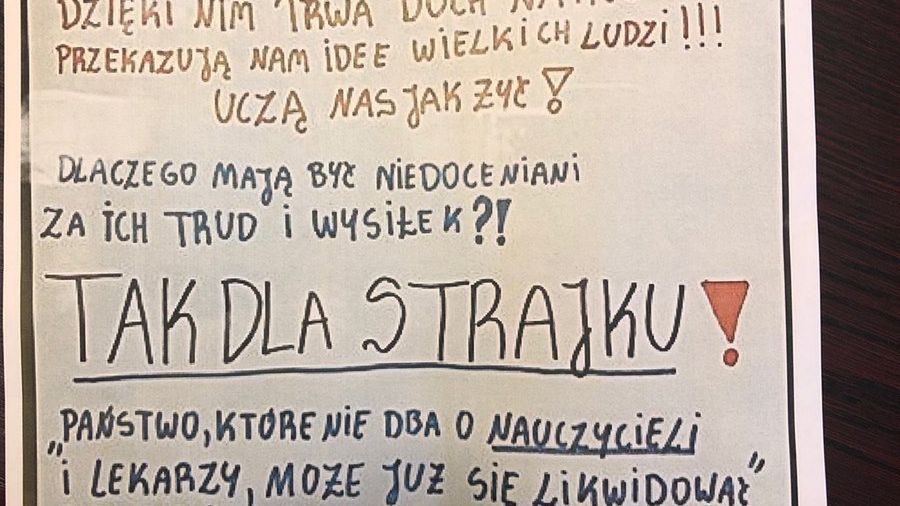 DZIĘKI NIM TRWA DUCH
PRZEKAZUJĄ NAM IDEE WIELKICH LUDZI!!!
UCZĄ NAS JAK ŻYĆ!
DLACZEGO MAJĄ BYĆ NIEDOCENIANI
ZA ICH TRUD I WYSIŁEK?!
TAK DLA STRAJKU!
„PAŃSTWO, KTÓRE NIE DBA O NAUCZYCIELI
I LEKARZY, MOŻE JUŻ SIĘ LIKWIDOWAĆ”